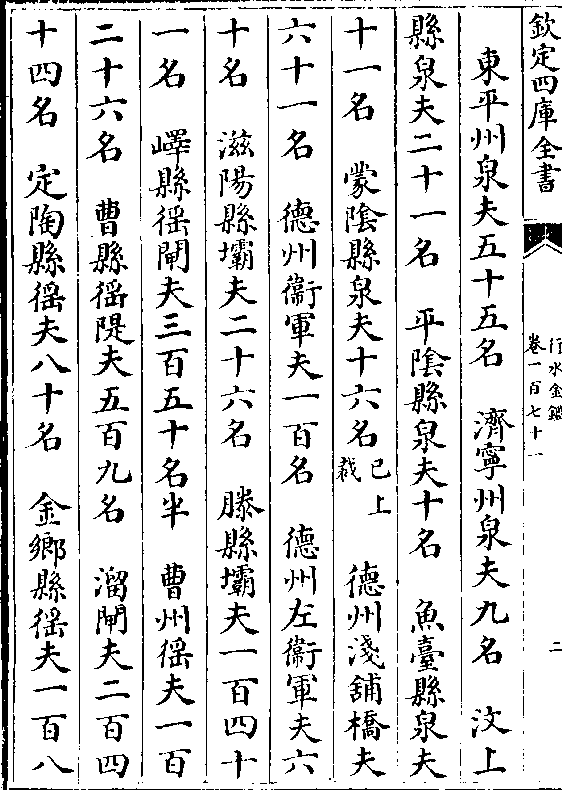 欽定四庫全書
行水金鑑
卷一百七十一
二
東平州泉夫五十五名　濟寧州泉夫九名　汶上
縣泉夫二十一名　平陰縣泉夫十名　魚臺縣泉夫
十一名　蒙陰縣泉夫十六名已上裁　德州淺舖橋夫
六十一名　德州衞軍夫一百名　德州左衞軍夫六
十名　滋陽縣壩夫二十六名　滕縣壩夫一百四十
一名　嶧縣徭閘夫三百五十名半　曹州徭夫一百
二十六名　曹縣徭隄夫五百九名　溜閘夫二百四
十四名　定陶縣徭夫八十名　金鄉縣徭夫一百八